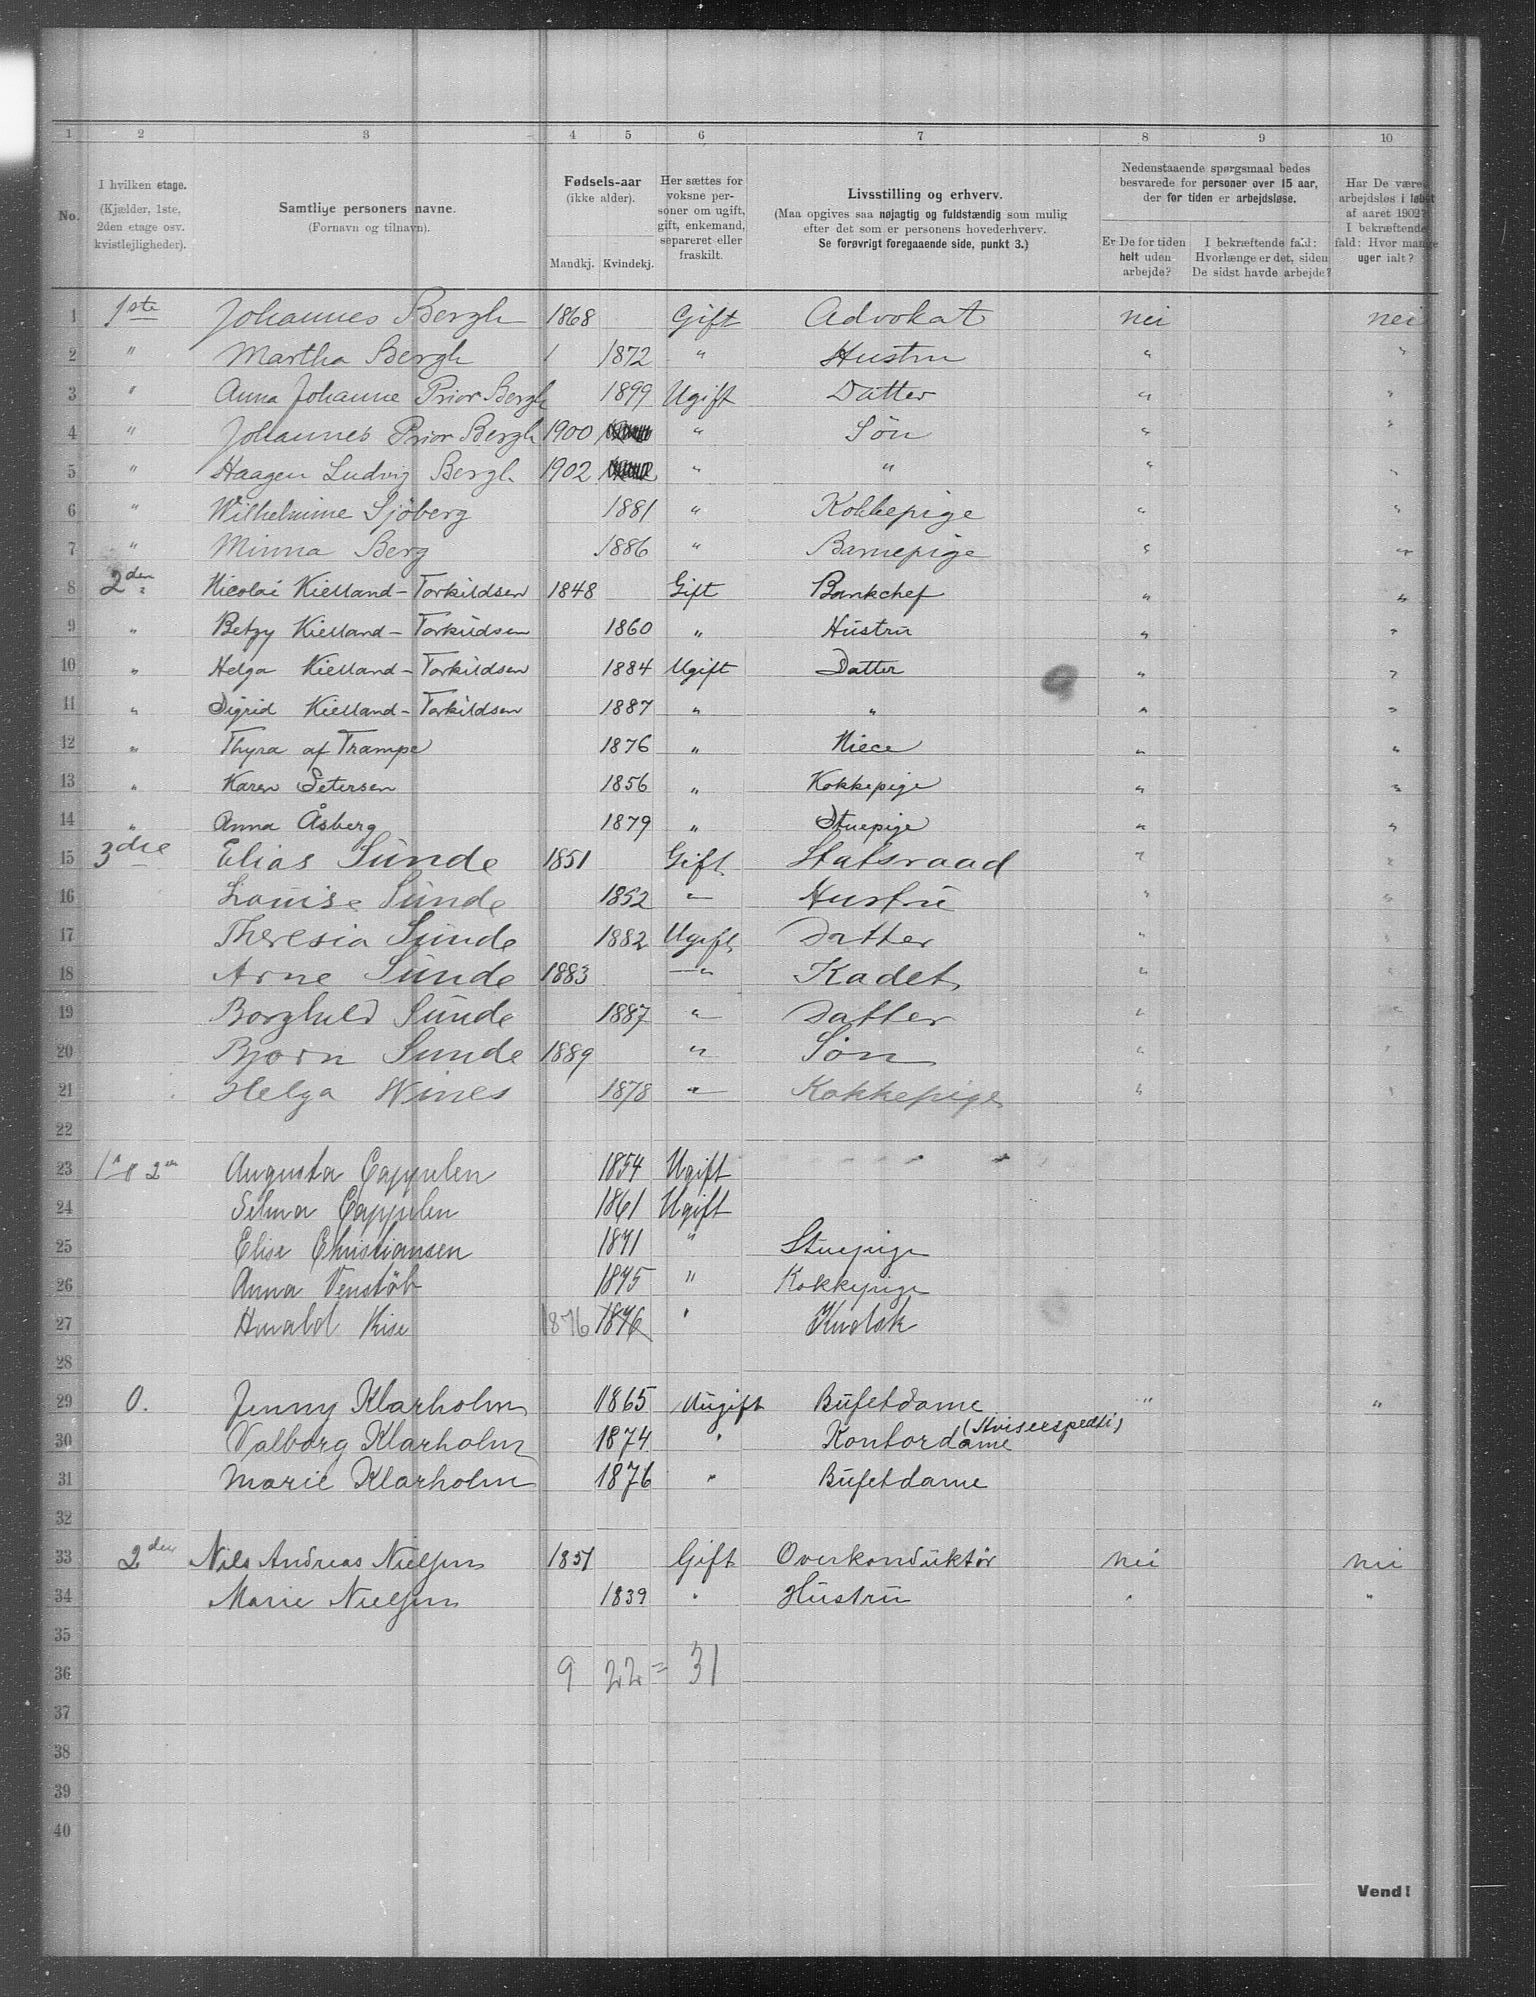 1 2 3 4 5 6 7 8 9 10
No.
I hvilken etage. (Kjælder, 1ste, 2den etage osv. kvistlejligheder).
Samtlige personers navne. (Fornavn og tilnavn).
Fødsels-aar (ikke alder). Mandkj. Kvindekj.
Her sættes for voksne personer om ugift, gift, enkemand, separeret eller fraskilt.
Livsstilling og erhverv. (Maa opgives saa nøjagtig og fuldstændig som mulig efter det som er personens hovederhverv. Se forøvrigt foregaaende side, punkt 3.)
Nedenstaaende spørgsmaal bedes besvarede for personer over 15 aar, der for tiden er arbejdsløse.
Er De for tiden helt uden arbejde?
I bekræftende fald: Hvorlænge er det, siden De sidst havde arbejde?
Har De været arbejdsløs i løbet af aaret 1902? I bekræftende fald: Hvor mange uger ialt?
1 1ste Johannes Bergh 1868 Gift Advokat nei nei
2 " Martha Bergh 1872 " Hustru " "
3 " Anna Johanne Prior Bergh 1899 Ugift Datter " "
4 " Johannes Prior Bergh 1900 " Søn " "
5 " Haagen Ludvig Bergh 1902 " " " "
6 " Wilhelmine Sjöberg 1881 " Kokkepige " "
7 " Minna Berg 1886 " Barnepige " "
8 2den Nicolai Kielland-Torkildsen 1848 Gift Bankchef " "
9 " Betzy Kielland-Torkildsen 1860 " Hustru " "
10 " Helga Kielland-Torkildsen 1884 Ugift Datter " "
11 " Sigrid Kielland-Torkildsen 1887 " " " "
12 " Thyra af Trampe 1876 " Niece " "
13 " Karen Petersen 1856 " Kokkepige " "
14 " Anna Åsberg 1879 " Stuepige " "
15 3die Elias Sunde 1851 Gift Statsraad " "
16 Louise Sunde 1852 " Hustru " "
17 Theresia Sunde 1882 Ugift Datter " "
18 Arne Sunde 1883 " Kadet " "
19 Borghild Sunde 1887 " Datter " "
20 Bjørn Sunde 1889 " Søn " "
21 Helga Wines 1878 " Kokkepige " "
22
23 Augusta Cappelen 1854 Ugift
24 Selma Cappelen 1861 Ugift
25 Elise Christiansen 1871 " Stuepige
26 Anna Venstöb 1875 " Kokkepige
27 1876 1876 "
28
29 0. Jenny Klarholm 1865 Uugift Büfetdame " "
30 Valborg Klarholm 1874 " Kontordame
31 Marie Klarholm 1876 " Büfetdame
32
33 2den Nils Andreas Nielsen Gift Overkonduktör nei nei
34 Marie Nielsen 1839 " Hustru " "
35
36 9 22 = 31
37
38
39
40
Vend!